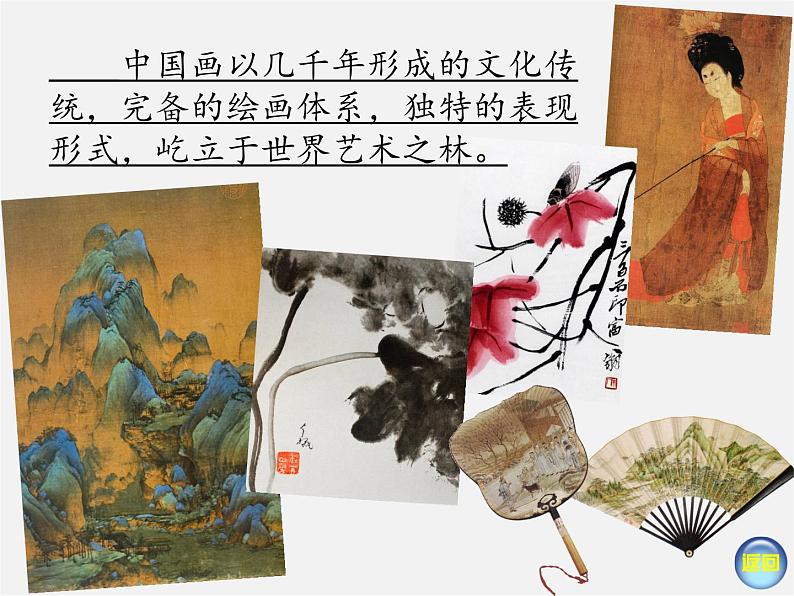 中国画以几千年形成的文化传
统，完备的绘画体系，独特的表现
形式，屹立于世界艺术之林。
三百石印富翁
返回